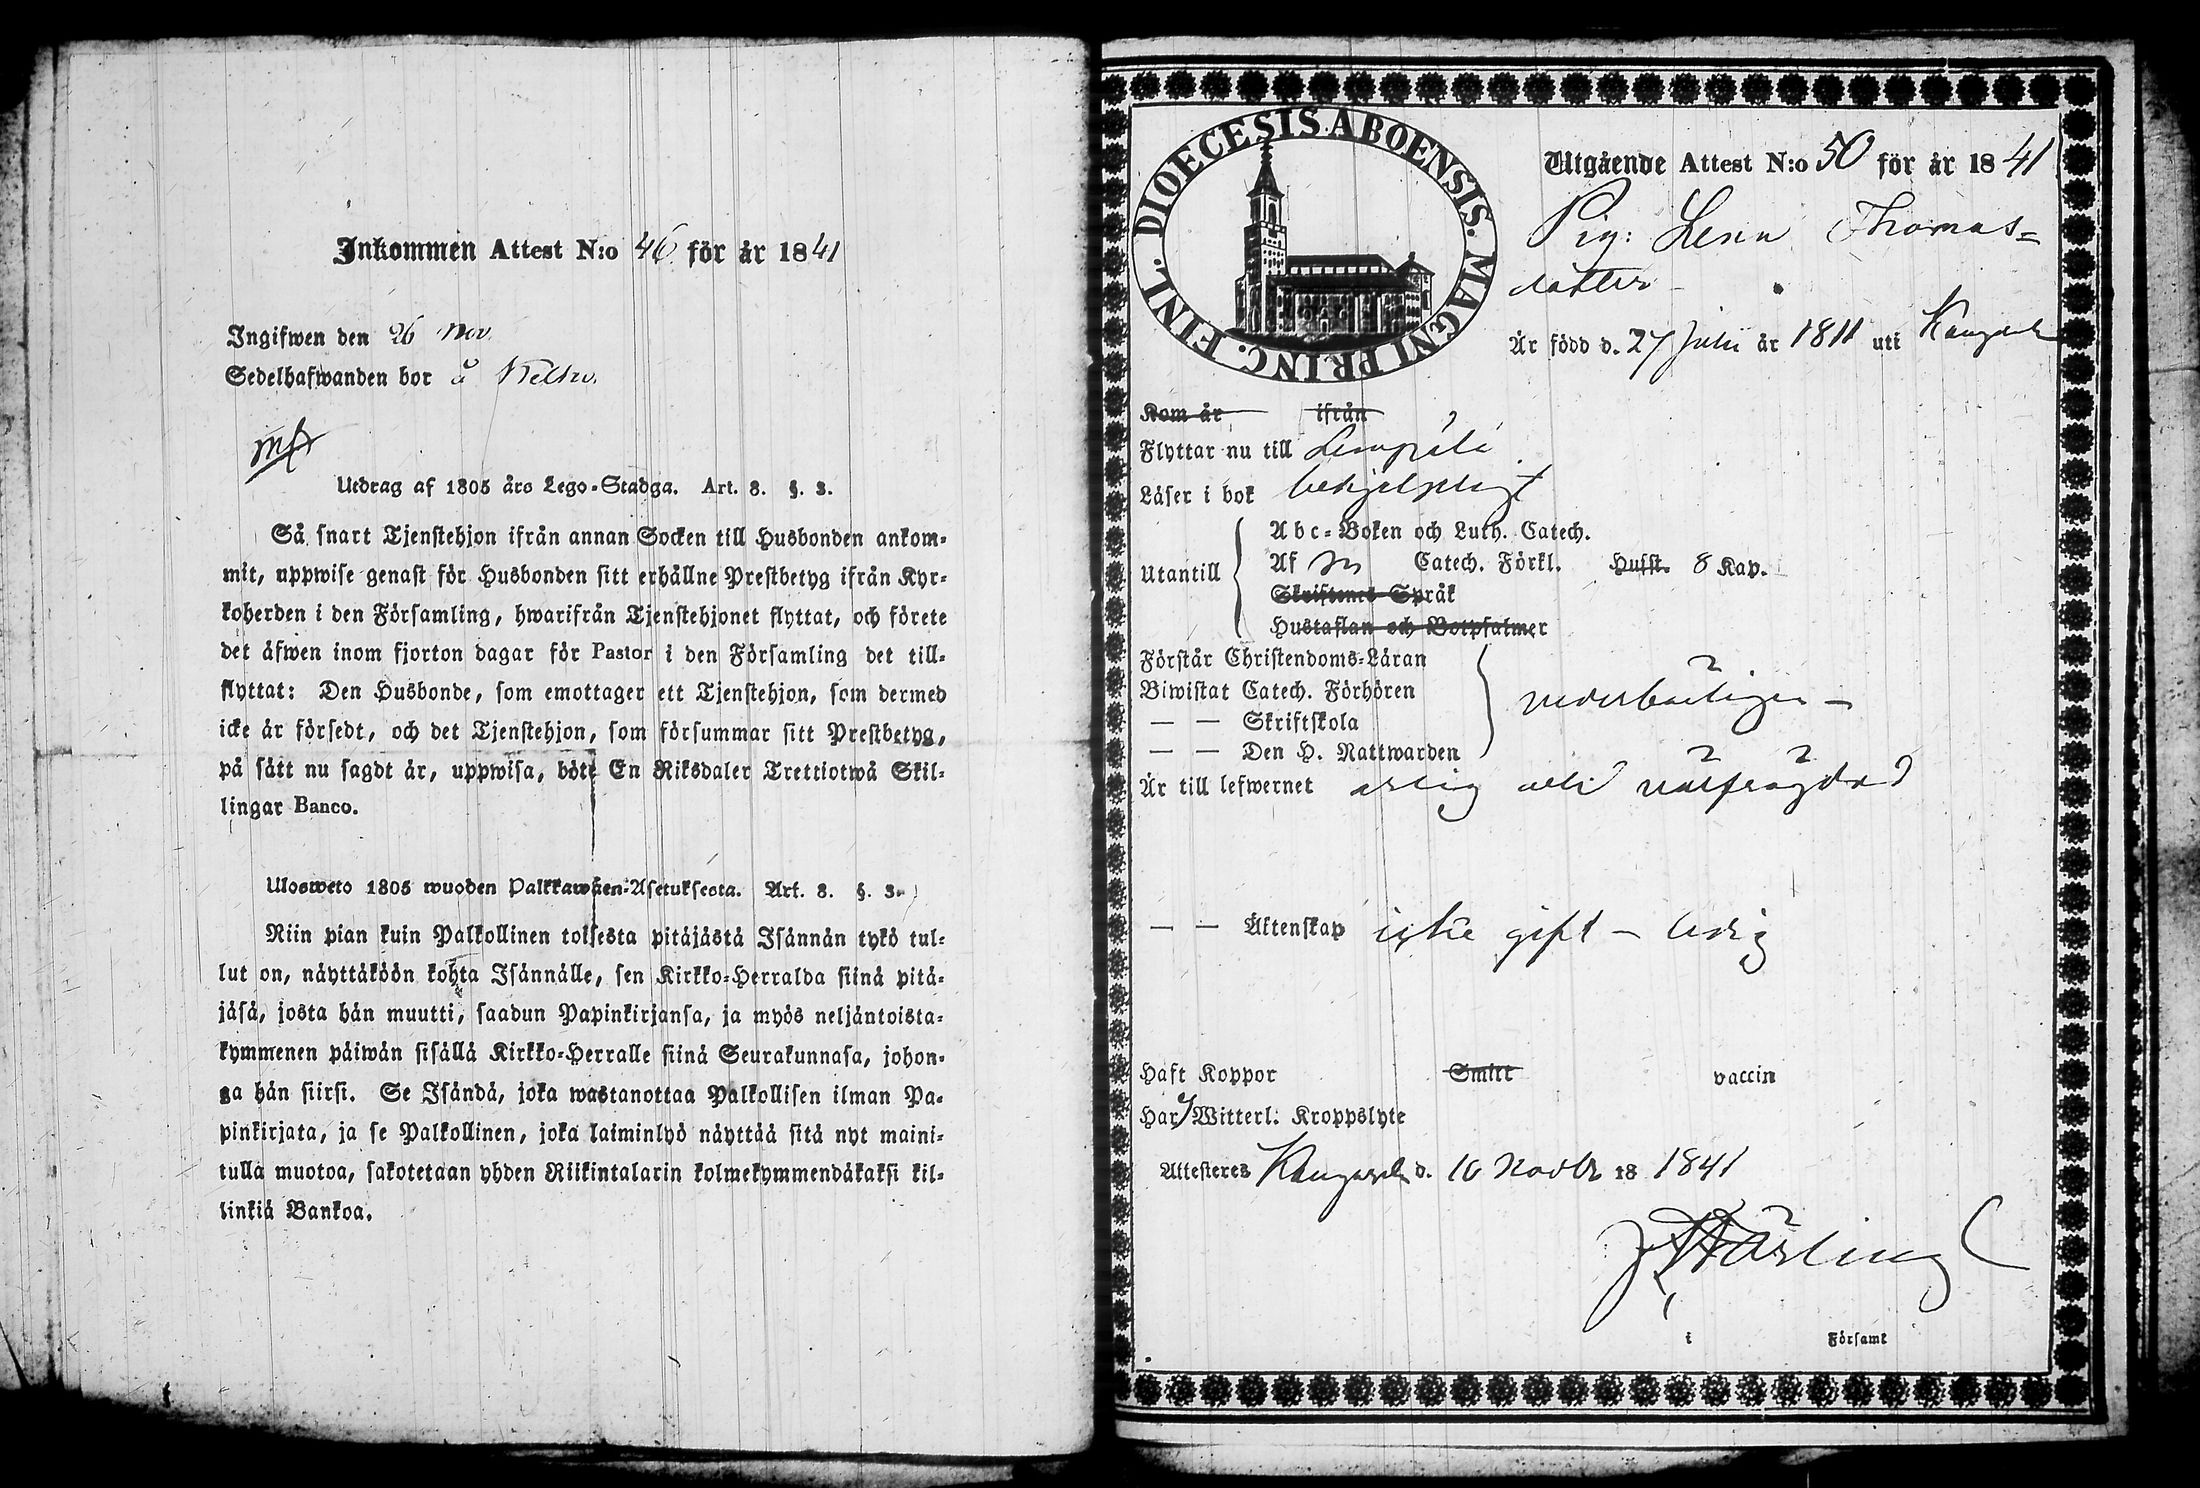 Inkommen Attest N:o 46 för år 1841
Ingifwen den 26 Nov.
Sedelhafwanden bor å
Utdrag af 1805 års Lego-Stadga. Art. 8. §. 3.
Så snart Tjenstehjon ifrån annan Socken till Husbonden ankom-
mit, uppwise genast för Husbonden sitt erhållne Prestbetyg ifrån Kyr-
koherden i den Församling, hwarifrån Tjenstehjonet flyttat, och förete
det äfwen inom fjorton dagar för Pastor i den Församling det till-
flyttat: Den Husbonde, som emottager ett Tjenstehjon, som dermed
icke är försedt, och det Tjenstehjon, som försummar sitt Prestbetyg,
på sätt nu sagdt är, uppwisa, böte En Riksdaler Trettiotwå Skil-
lingar Banco.
Ulosweto 1805 wuoden Palkkawäen-Asetuksesta. Art. 8. §. 3.
Niin pian kuin Palkollinen toisesta pitäjästä Isännän tykö tul-
lut on, näyttäköön kohta Isännälle, sen Kirkko-Herralda siinä pitä-
jäsä, josta hän muutti, saadun Papinkirjansa, ja myös neljäntoista-
kymmenen päiwän sisällä Kirkko-Herralle siinä Seurakunnasa, johon-
ga hän siirsi. Se Isändä, joka wastanottaa Palkollisen ilman Pa-
pinkirjata, ja se Palkollinen, joka laiminlyö näyttää sitä nyt maini-
tulla muotoa, sakotetaan yhden Riikintalarin kolmekymmendäkaksi kil-
linkiä Bankoa.
DIOECESIS ABOENSIS. MAGNI PRINC. FINL.
Utgående Attest N:o 50 för år 1841
Pig: Lena Thomas-
dotter
Är född d. 27 Julii år 1811 uti Kangasala
Kom år ifrån
Flyttar nu till Lempälä
Läser i bok behjelpligt
Utantill
Abc-Boken och Luth. Catech.
Af Catech. Förkl. Husst. 8 Kap.
Skriftenes Språk
Hustaflan och Botpsalmer
Förstår Christendoms-Läran
Biwistat Catech. Förhören
— — Skriftskola
— — Den H. Nattwarden
Är till lefwernet ärlig och välfrägdad
— — Äktenskap icke gift – ledig
Haft Koppor Smitt vaccin
Har Witterl. Kroppslyte
Attesteres Kangasala d. 10 Novbr 18 1841
i Församl